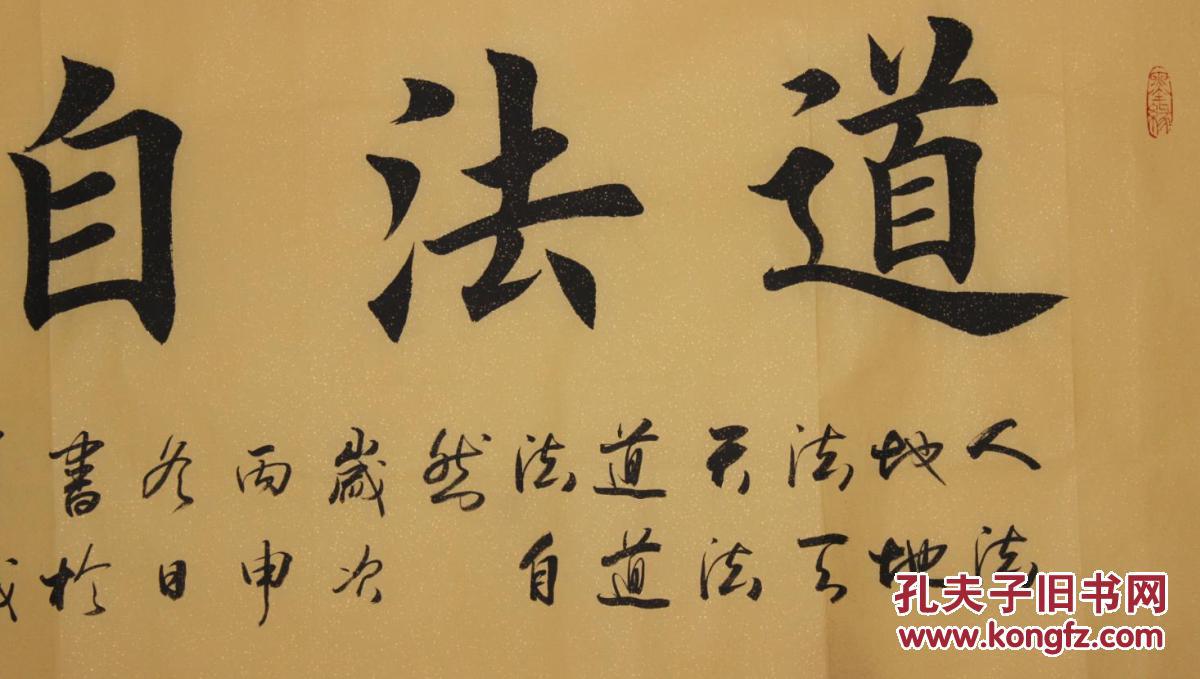 道法自
人法
地地
法天
天法
道道
法自
然
歲次
丙申
冬日
書於
孔夫子旧书网
www.kongfz.com